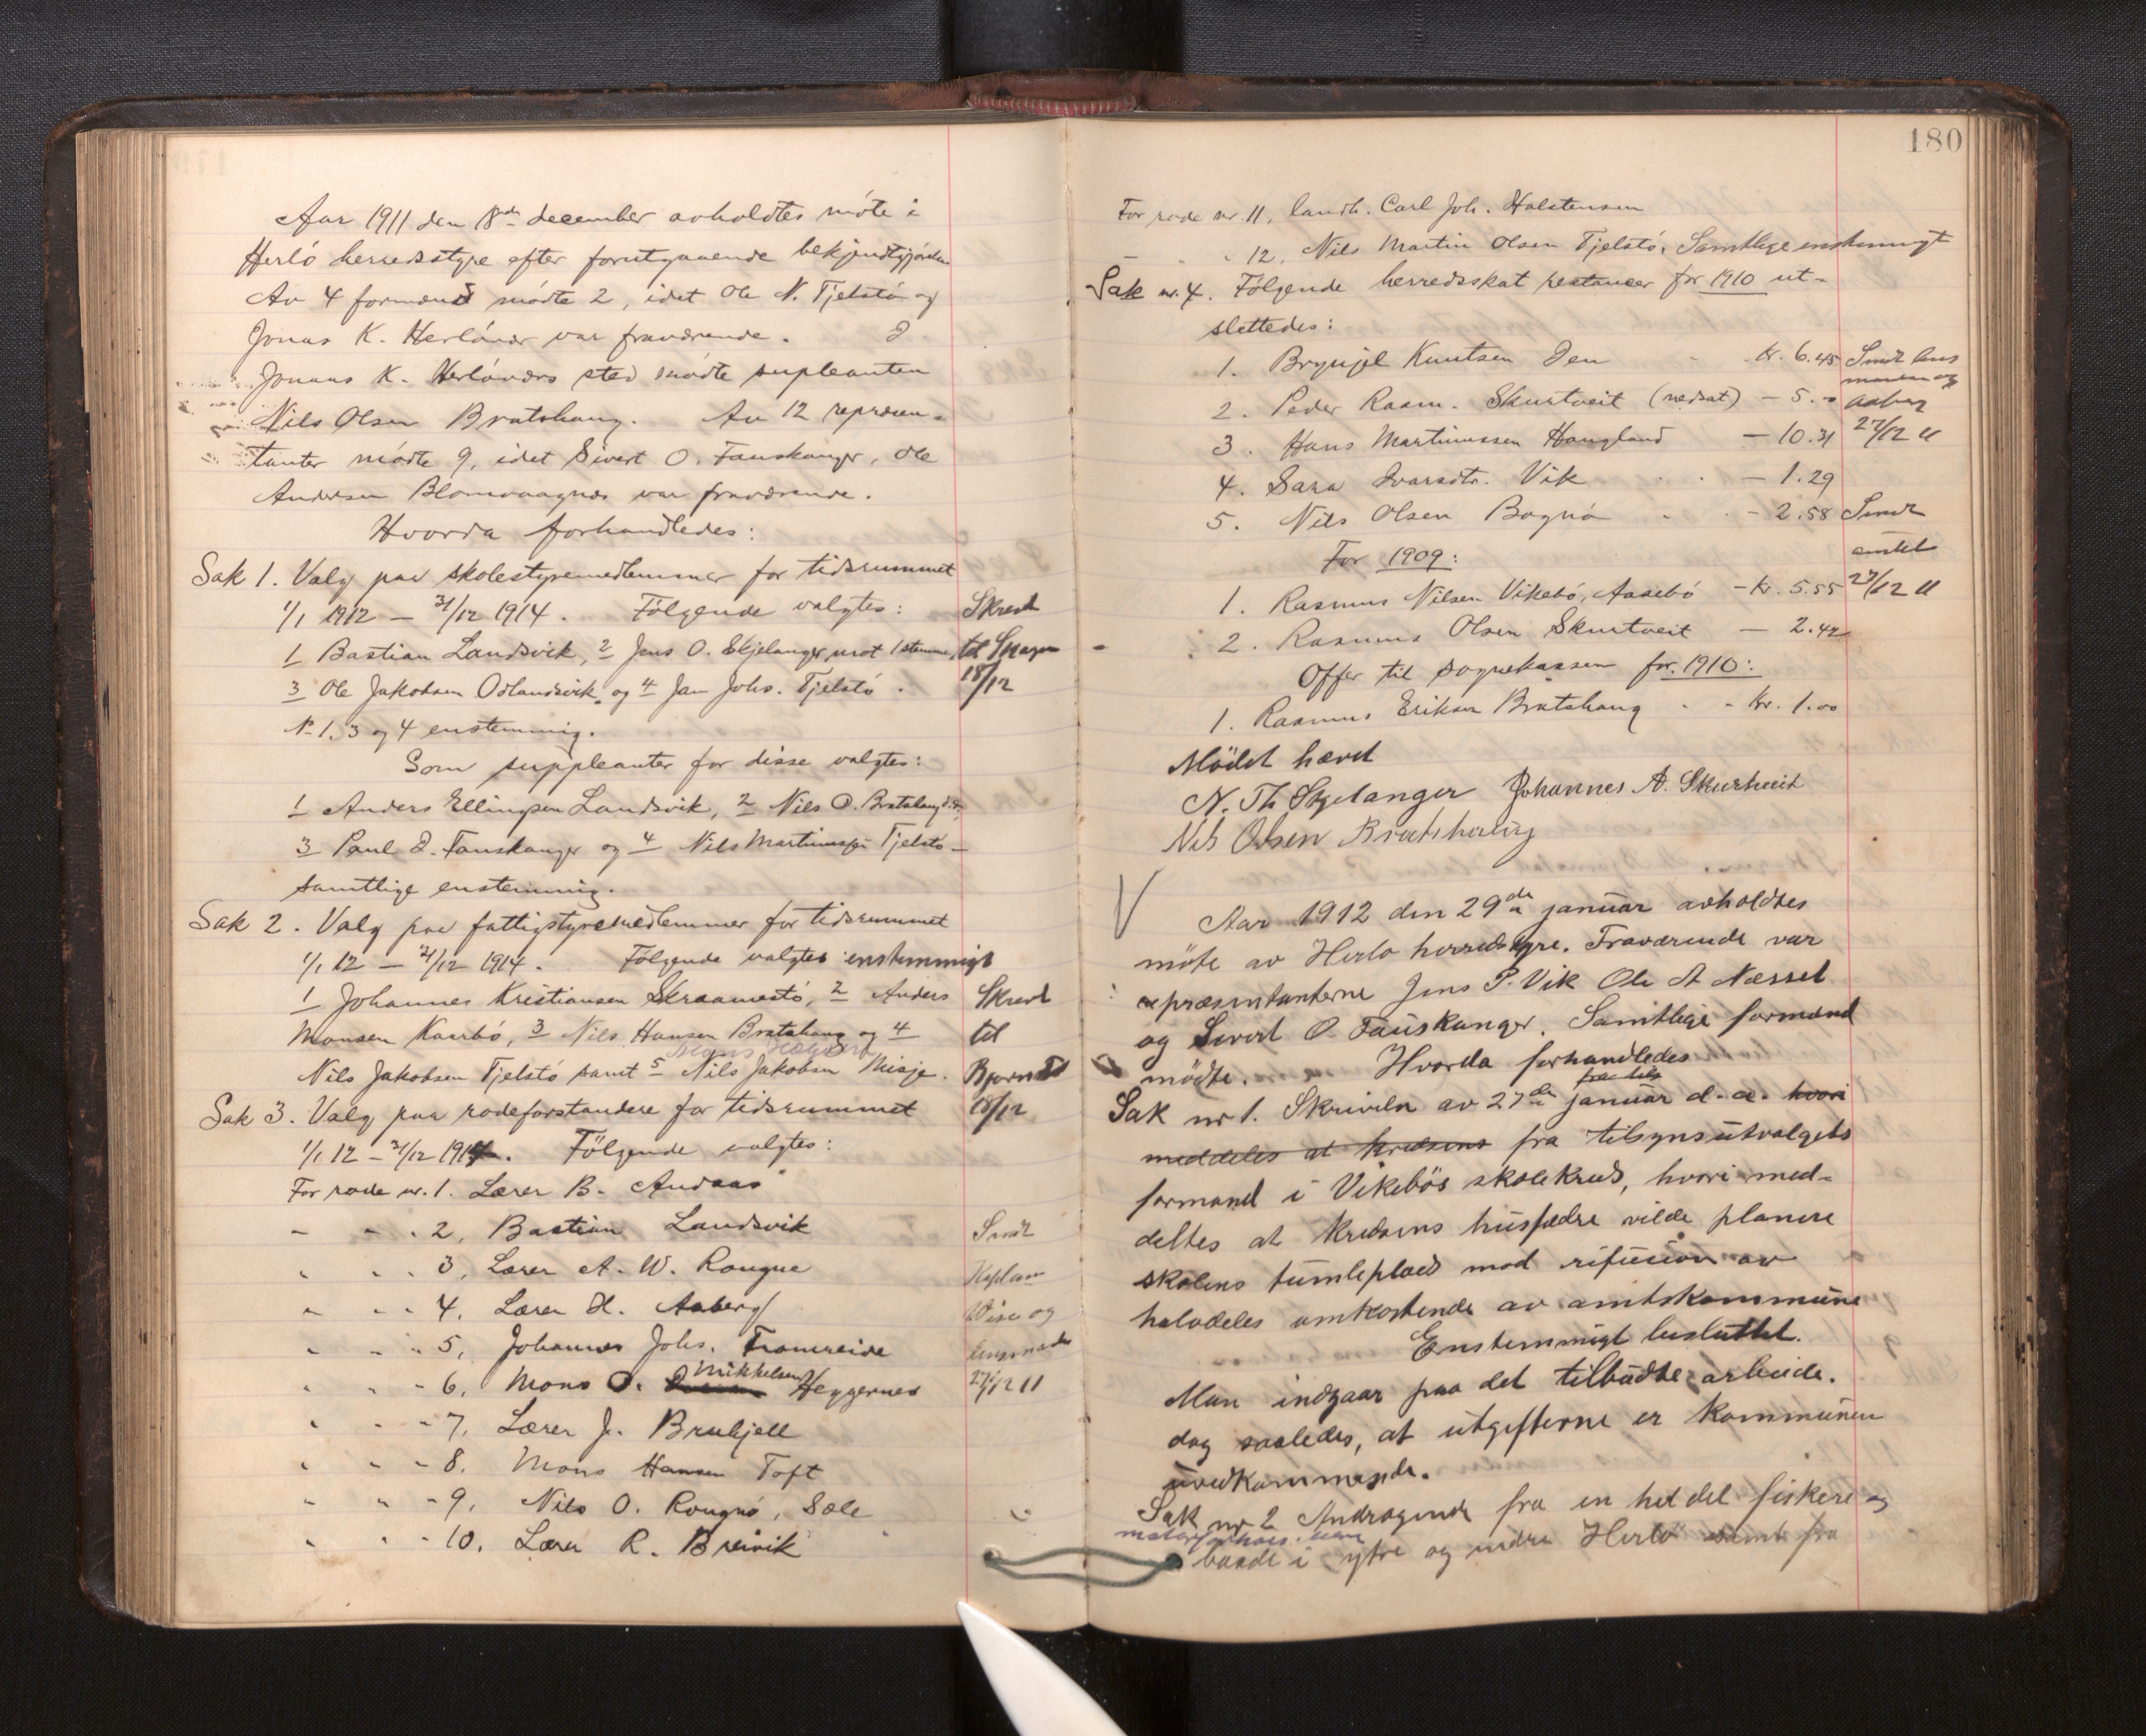 Aar 1911 den 18de december avholdtes møte i
Herlö herredsstyre efter forutgaaende bekjendtgjörelse
Av 4 formænd mödte 2, idet Ole N. Tjelstö og
Jonas K. Herlövær var fraværende. I
Jonaas K. Herlöværs sted mödte supleanten
Nils Olsen Bratshaug. Av 12 repræsen-
tanter mödte 9, idet Sivert O. Fauskanger, Ole
Andersen Blomvaagnæs var fraværende.
Hvorda forhandledes:
Sak 1. Valg paa skolestyremedlemmer for tidsrummet
1/1 1912 – 31/12 1914. Fölgende valgtes:
Skrevet
1 Bastian Landsvik, 2 Jens O. Skjelanger, mot 1 stemme,
til
3 Ole Jakobsen Odlandsvik og 4 Jan Johs. Tjelstö.
18/12
N 1, 3 og 4 enstemmig.
Som suppleanter for disse valgtes:
1 Anders Ellingsen Landsvik, 2 Nils O. Bratshaug
3 Paul I. Fauskanger og 4 Nils Martinussen Tjelstö –
samtlige enstemmig.
Sak 2. Valg paa fattigstyremedlemmer for tidsrummet
1/1 12 – 31/12 1914. Fölgende valgtes enstemmigt
1 Johannes Kristiansen Skraamestö, 2 Anders
Skrevet
Monsen Kaarbö, 3 Nils Hansen Bratshaug og 4
til
Nils Jakobsen Tjelstö samt 5 Nils Jakobsen Misje.
Sak 3. Valg paa rodeforstandere for tidsrummet
18/12
1/1 12 – 31/12 1914. Fölgende valgtes:
For rode nr. 1. Lærer B. Andaas
" " " 2, Bastian Landsvik
Sendt
" " " 3, Lærer A. W. Rongne
" " " 4. Lærer H. Aaberg
" " " 5, Johannes Johs. Framreide
" " " 6, Mons O. Mikkelsen Heggernes
27/12 11
" " " 7, Lærer J. Brukjell
" " " 8. Mons Hansen Toft
" " " 9, Nils O. Rongnö, Sæle
" " " 10, Lærer R. Breivik
180
For rode nr. 11, landh. Carl Joh. Halstensen
" " " 12, Nils Martin Olsen Tjelstö. Samtlige enstemmigt
Sak nr. 4. Fölgende herredsskat restancer for 1910 ut-
slettedes:
1. Brynjel Knutsen Den kr. 6.45
Sendt lens
manden og
2. Peder Rasm. Skurtveit (nedsat) – 5.–
Aaberg
3. Hans Martinussen Haugland – 10.31
27/12 11
4. Sara Ivarsdtr. Vik – 1.29
5. Nils Olsen Bognö – 2.58
Sendt
amtet
For 1909:
1. Rasmus Nilsen Vikebö, Aasebö – kr. 5.55
27/12 11
2. Rasmus Olsen Skurtveit – 2.42
Offer til sognekassen for 1910:
1. Rasmus Eriksen Bratshaug kr. 1.00
Mödet hævet
N. Th Skjelanger Johannes A. Skurtveit
Nils Olsen Bratshaug
V
Aar 1912 den 29de januar avholdtes
möte av Herlo herredstyre. Fraværende var
repræsentanterne Jens P. Vik Ole A Næsset
og Sivert O. Fauskanger. Samtlige formænd
mödte. Hvorda forhandledes
Sak nr 1. Skrivelse av 27de januar d.a. hvori
meddeles at kredsens fra tilsynsutvalgets
formand i Vikebös skolekreds, hvori med-
deltes at kredsens husfædre vilde planere
skolens tumleplads mod refusion av
halvdeles omkostende av amtskommune
Enstemmigt besluttet.
Man indgaar paa det tilbudte arbeide.
dog saaledes, at utgifterne er kommunen
uvedkommende.
Sak nr 2 Andragende fra en hel del fiskere og
baade i ytre og indre Herlö samt fra